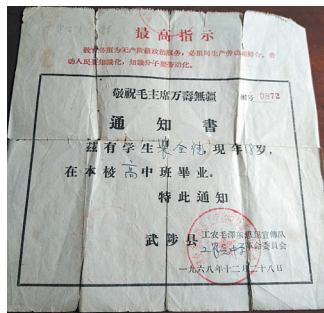 最高指示
教育必須为无产阶级政治服务，必須同生产劳动相結合。劳
动人民要知識化，知識分子要劳动化。
敬祝毛主席万壽無疆
編号 0872
通知書
茲有学生 全 現年 岁，
在本校高中班畢业。
特此通知
武陟县
工农毛澤东思想宣傳队
革命委員会
一九六八年十二月二十八日